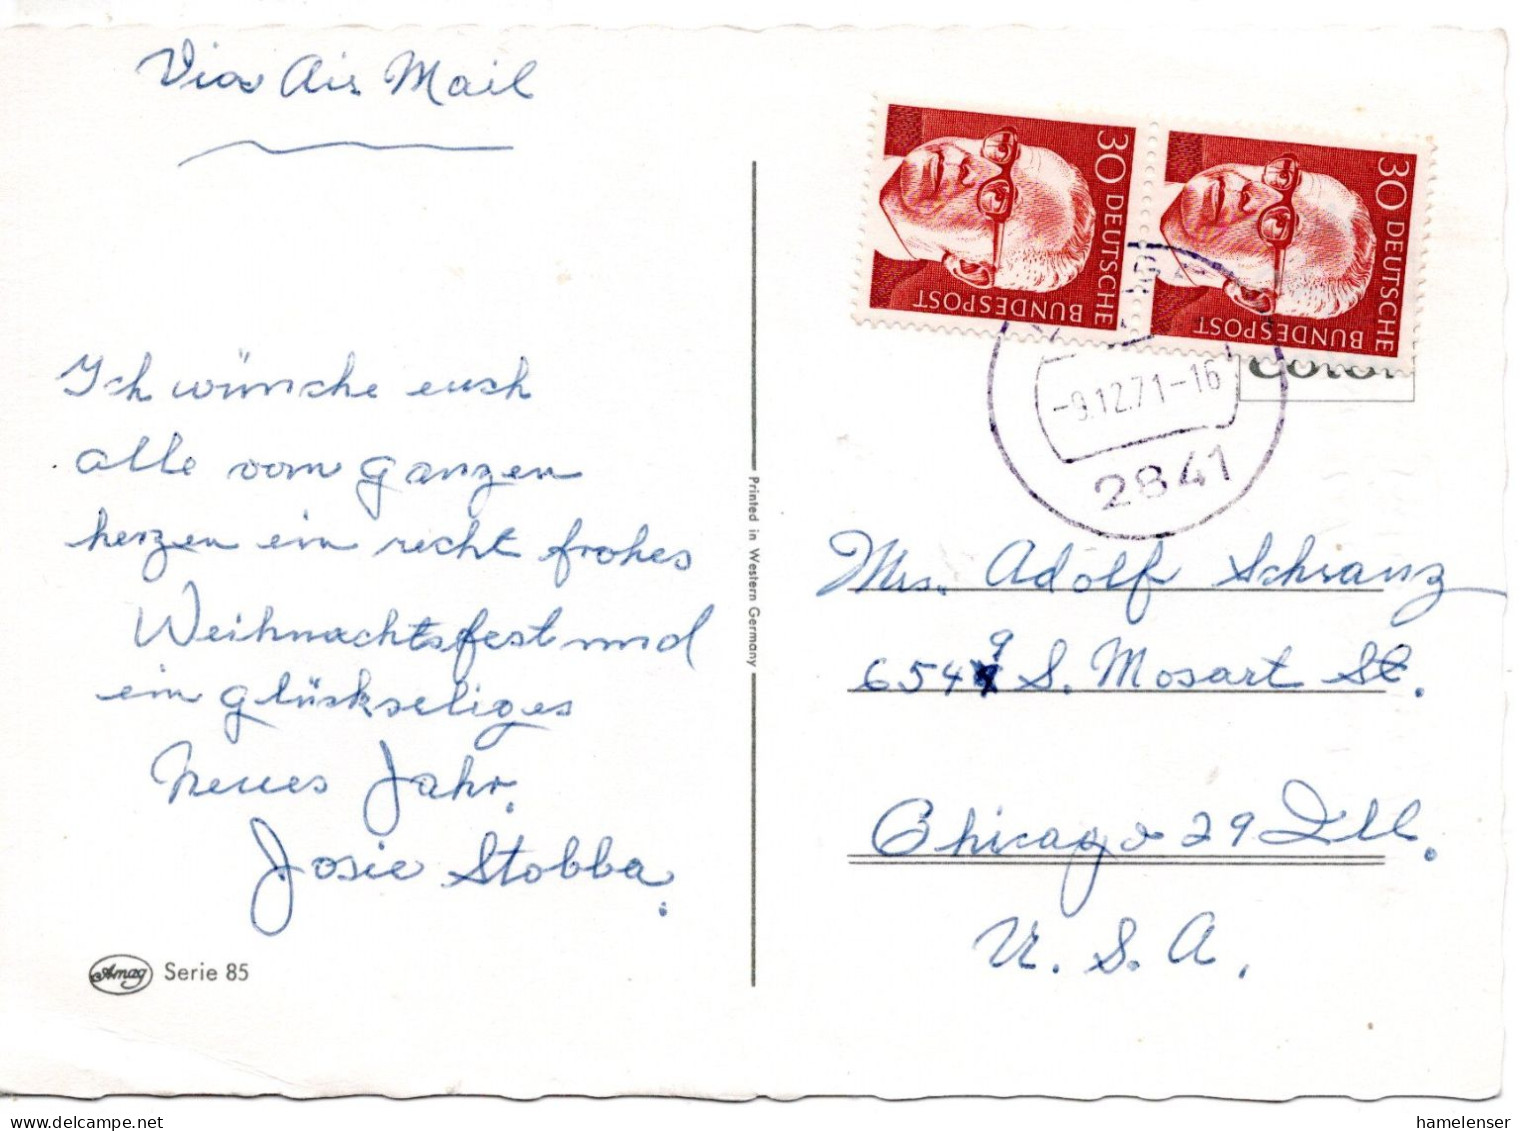 Via Air Mail
Ich wünsche euch
alle vom ganzen
herzen ein recht frohes
Weihnachtsfest und
ein glückseliges
Neues Jahr.
Josie Stobba.
Amag Serie 85
Printed in Western Germany
30 DEUTSCHE
BUNDESPOST
30 DEUTSCHE
BUNDESPOST
-9.12.71-16
2841
Color
Mrs. Adolf Schranz
6549 S. Mosart St.
Chicago 29 Ill.
U.S.A.
hamelenser